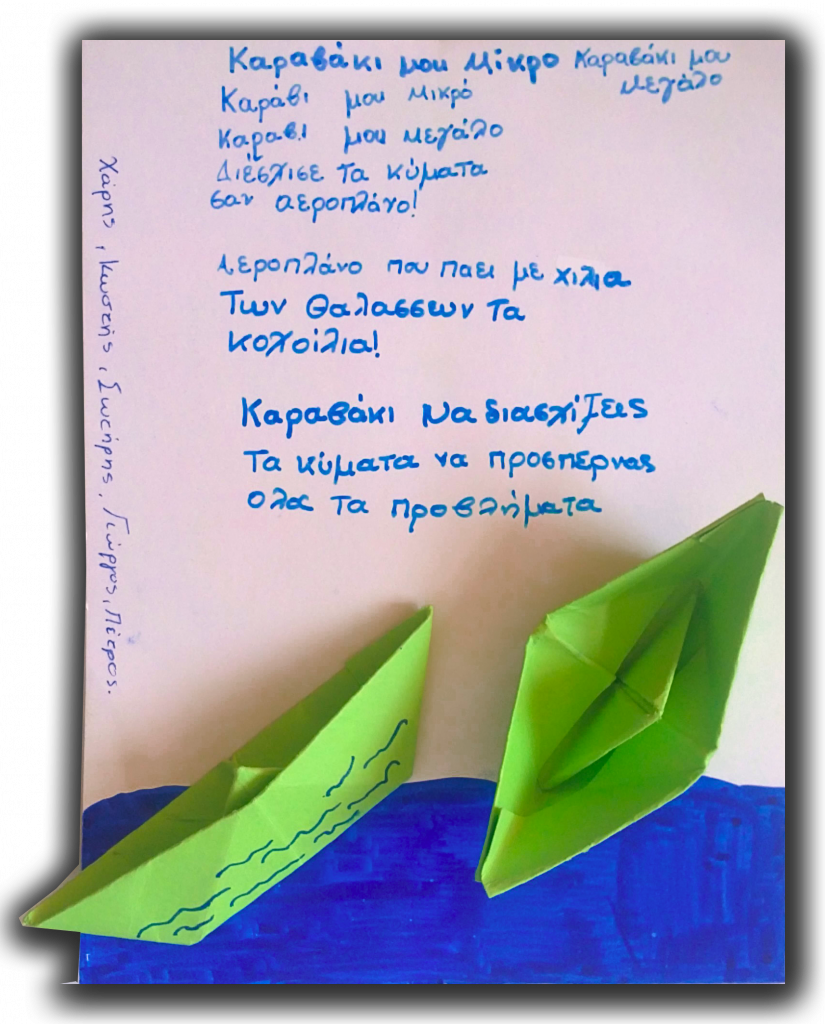 Καραβάκι μου μικρό Καραβάκι μου
μεγάλο
Καράβι μου μικρό
Καραβι μου μεγάλο
Διέσχισε τα κύματα
σαν αεροπλάνο!
Αεροπλάνο που παει με χιλια
Των θαλασσων τα
κοχοίλια!
Καραβάκι να διασχίζεις
Τα κύματα να προσπερνας
ολα τα προβλήματα
Χάρης, Κωστής, Σωτήρης, Γιώργος, Πέτρος.